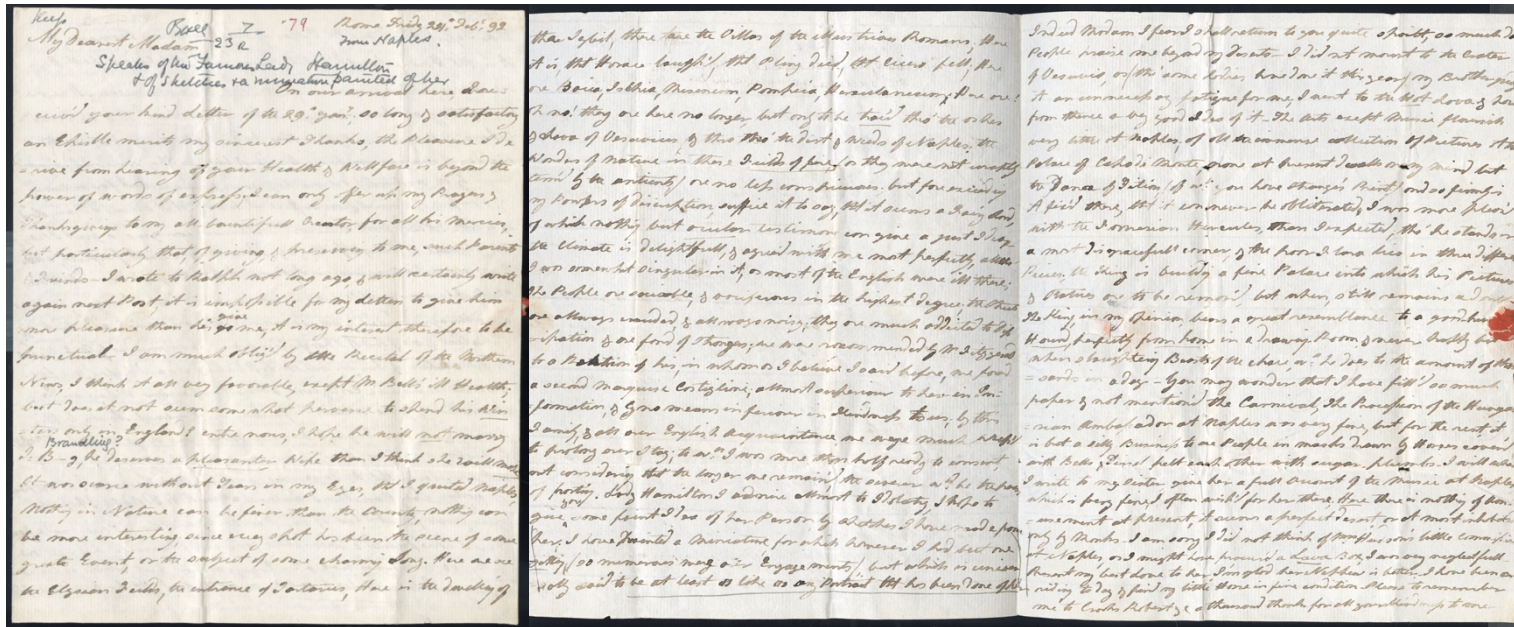 Keep
Bell 7 79 Rome Friday 24th Feb: 92
My Dearest Madam 23 a from Naples.
Speaks of the Famous Lady Hamilton
& of Sketches & a miniature painted of her
On our arrival here I re-
ceiv'd your kind Letter of the 29th Jany. so long & satisfactory
an Epistle merits my sincerest Thanks, the Pleasure I de
=rive from hearing of your Health & Wellfare is beyond the
power of words to express, I can only offer up my Prayers &
Thanksgivings to my all bountifull Creator for all his mercies,
but particularly that of giving & preserving to me, such Parents
& Friends. I wrote to Ralph not long ago, & will certainly write
again next Post, it is impossible for my Letters to give him
more pleasure than his give me, it is my interest therefore to be
punctual. I am much oblig'd by the Recital of the Northern
News, I think it all very favorable, except Mr Bell's ill Health;
but does it not seem somewhat perverse to spend his Win
=ter only in England! entre nous, I hope he will not marry
Brandling?
J. B--g, he deserves a pleasanter Wife than I think she will make
It was scarce without Tears in my Eyes, that I quitted Naples,
Nothing in Nature can be finer than the Country, nothing can
be more interesting, since every spot has been the scene of some
great Event or the subject of some charming Song. Here are we
the Elysian Fields, the entrance of Tartarus, Here is the dwelling of
the Sybil, there are the Villas of the illustrious Romans, Here
it is, that Horace laugh'd, that Pliny died, that Cicero fell, Here
are Baia, Ischia, Misenum, Pompeia, Herculaneum; Here are!
Oh no! they are here no longer but only to be trac'd thro' the ashes
& Lava of Vesuvius, & thro' the Dirt & Weeds of Naples. the
Wonders of Nature in these Fields of fire, (as they were not ineptly
term'd by the antients) are no less conspicuous. but far exceeding
my Powers of description, suffice it to say, that it seems a Fairy Land,
of which nothing but ocular testimony can give a just Idea,
the Climate is delightfull, & agreed with me most perfectly,
I was somewhat singular in it, as most of the English were ill there;
the People are sociable, & in the highest degree; the Streets
are allways crowded & allways noisy; they are much addicted to
& are fond of Strangers; we were recommended by Mr Fitzgerald
to a Relation of his, in whom as I believe I said before, we found
a second Marquise almost superiour to her in In-
formation, & by no means inferiour in Kindness to us; by this
Family, & all our English Acquaintance we were much
to prolong our Stay, to wch. I was more than half ready to consent
not considering that the longer we remain'd the severer wd. be the pang
of parting. Lady Hamilton I admire almost to Idolatry, I hope to
give you some faint Idea of her Person by sketches I have made from
her, I have Painted a Miniature for which however I had but one
sitting (so numerous were our Engagements) but which is univer
sally said to be at least as like as any Portrait tht has been done of her
Indeed Madam I fear I shall return to you quite spoilt, so much do
People praise me beyond my Deserts. I did not mount to the Crater
of Vesuvius, as (tho' some Ladies have done it this year) my Brother
it an unnecessary fatigue for me, I went to the Hot Lava & have
from thence a very good Idea of it. The Arts except Music flourish
very little at Naples, of all the immense collection of Pictures at the
Palace of Capo di Monte, none at present dwells on my mind but
the Danae of Titian (of wch. you have Strange's Print) and so firmly is
fix'd there, that it can never be obliterated, I was more pleas'd
with the Farnesian Hercules, than I expected, tho' he stands in
a most disgracefull corner, & the poor Flora lies in three different
Pieces, the King is building a fine Palace into which his Pictures
& Statues are to be remov'd, but when, still remains a doubt
the King, in my opinion, bears a great resemblance to a good
Hound, perfectly from home in a drawing Room & never happy but
when slaughtering Beasts of the chace wch. he does to the amount of thou
=sands in a day - You may wonder that I have fill'd so much
paper & not mentioned the Carnival, The Procession of the Hunga
=rian Ambassador at Naples was very fine, but for the rest, it
is but a silly Business to see People in masks drawn by Horses cover'd
with Bells & pelt each other with sugar plumbs. I will when
I write to my sister give her a full Account of the Music at Naples
which is very fine, I often wish'd for her there, Here there is nothing of Am=
=usement at present, it seems a perfect desart, or at most inhabited
only by Monks. I am sorry I did not think of Mrs Parsons little commission
at Naples, as I might have procur'd a Lava Box, I was very neglectfull.
Present my best love to her, I am glad her Nephew is better. I have been
riding to day & find my little Horse in fine condition. Please to remember
me to & a thousand thanks for all your kindness to me